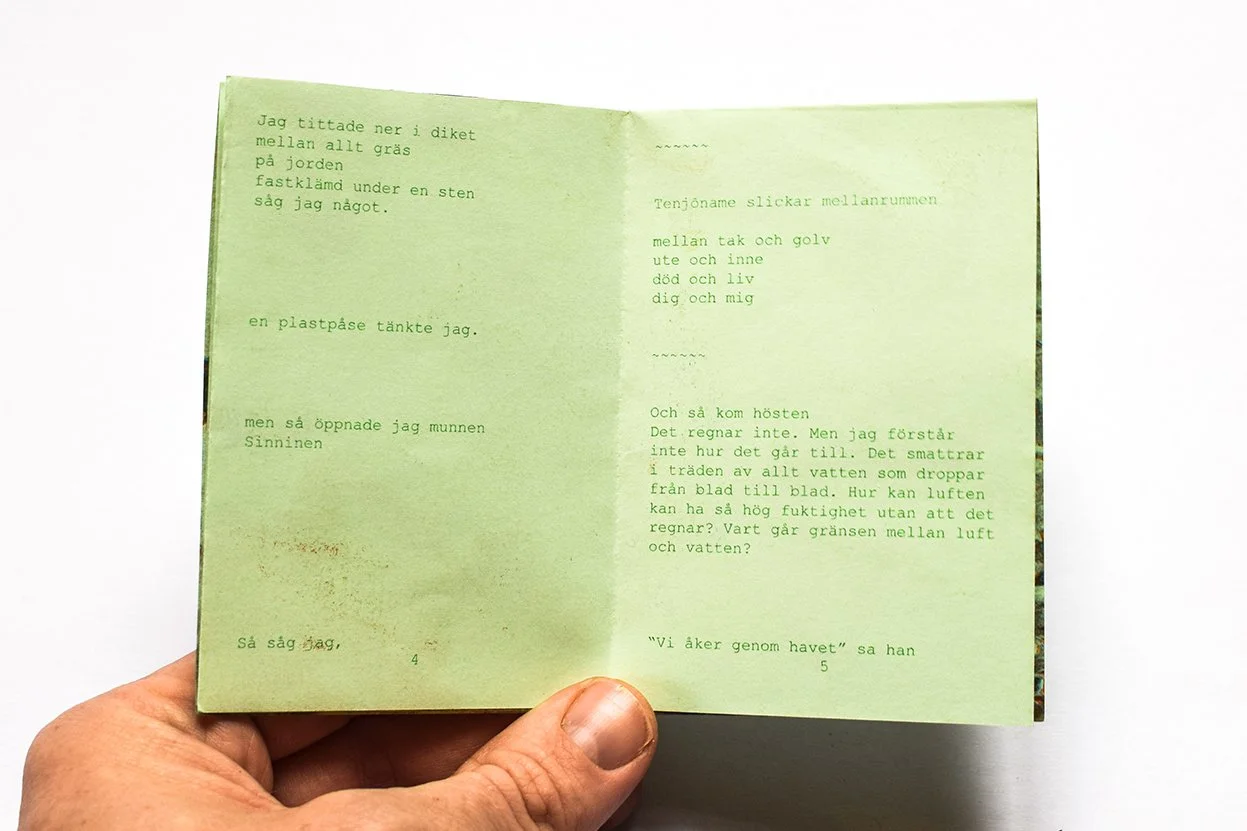 Jag tittade ner i diket
mellan allt gräs
på jorden
fastklämd under en sten
såg jag något.
en plastpåse tänkte jag.
men så öppnade jag munnen
Sinninen
Så såg jag,
4
~~~~~~
Tenjôname slickar mellanrummen
mellan tak och golv
ute och inne
död och liv
dig och mig
~~~~~~
Och så kom hösten
Det regnar inte. Men jag förstår
inte hur det går till. Det smattrar
i träden av allt vatten som droppar
från blad till blad. Hur kan luften
kan ha så hög fuktighet utan att det
regnar? Vart går gränsen mellan luft
och vatten?
“Vi åker genom havet” sa han
5